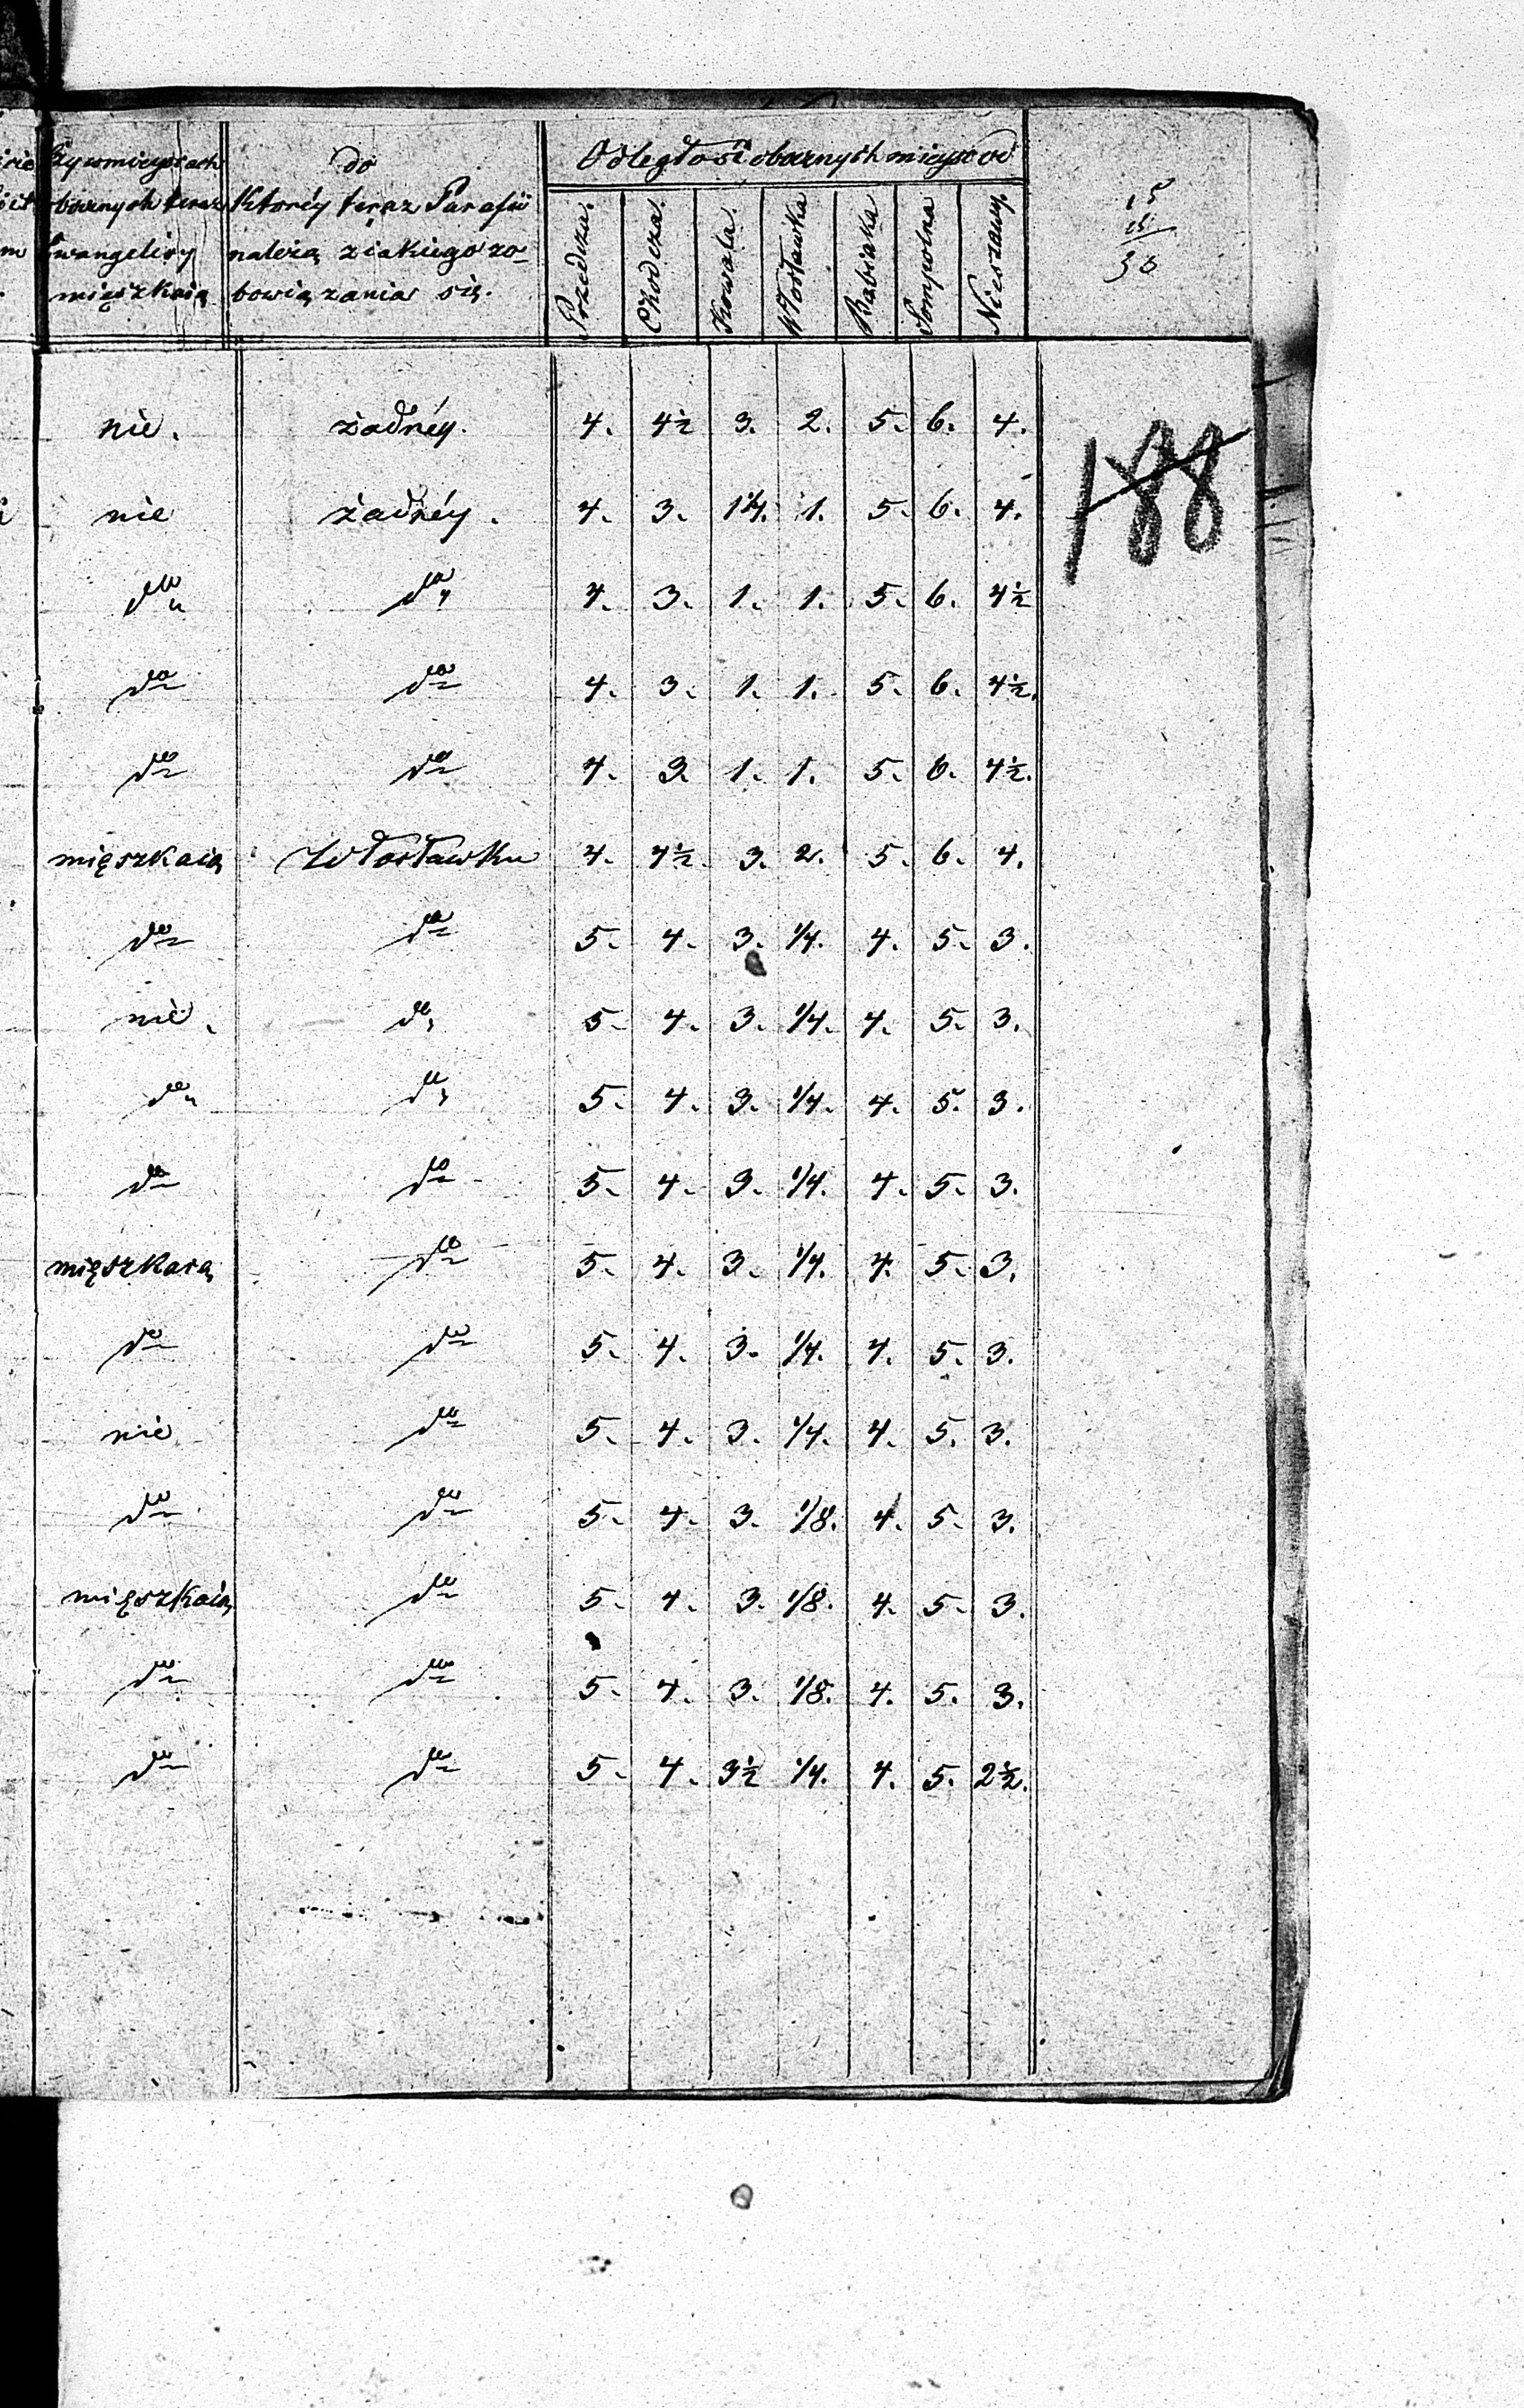 Czy w mieyscach
obocznych teraz
Ewangelicy
mięszkaią
do
Któréy teraz Parafii
należą z iakiego zo-
bowiązania się.
Odległość obocznych mieysc od
Przedcza.
Chodcza.
Kowala.
Włocławka
Babiaka
Sompolna
Nieszawy.
15
15
30
188
nie. żadnéy. 4. 4½ 3. 2. 5. 6. 4.
nie żadnéy. 4. 3. 1¼. 1. 5. 6. 4.
dto dto 4. 3. 1. 1. 5. 6. 4½
dto dto 4. 3. 1. 1. 5. 6. 4½.
dto dto 4. 3 1. 1. 5. 6. 4½.
mięszkaią Włosławku 4. 4½. 3. 2. 5. 6. 4.
dto dto 5. 4. 3. 1/4. 4. 5. 3.
nie. do 5. 4. 3. 1/4. 4. 5. 3.
dto do 5. 4. 3. 1/4. 4. 5. 3.
dto dto 5. 4. 3. 1/4. 4. 5. 3.
mięszkaią dto 5. 4. 3. 1/4. 4. 5. 3.
dto dto 5. 4. 3. 1/4. 4. 5. 3.
nie dto 5. 4. 3. 1/4. 4. 5. 3.
dto dto 5. 4. 3. 1/8. 4. 5. 3.
mięszkaią dto 5. 4. 3. 1/8. 4. 5. 3.
dto dto 5. 4. 3. 1/8. 4. 5. 3.
dto dto 5. 4. 3½ 1/4. 4. 5. 2½.